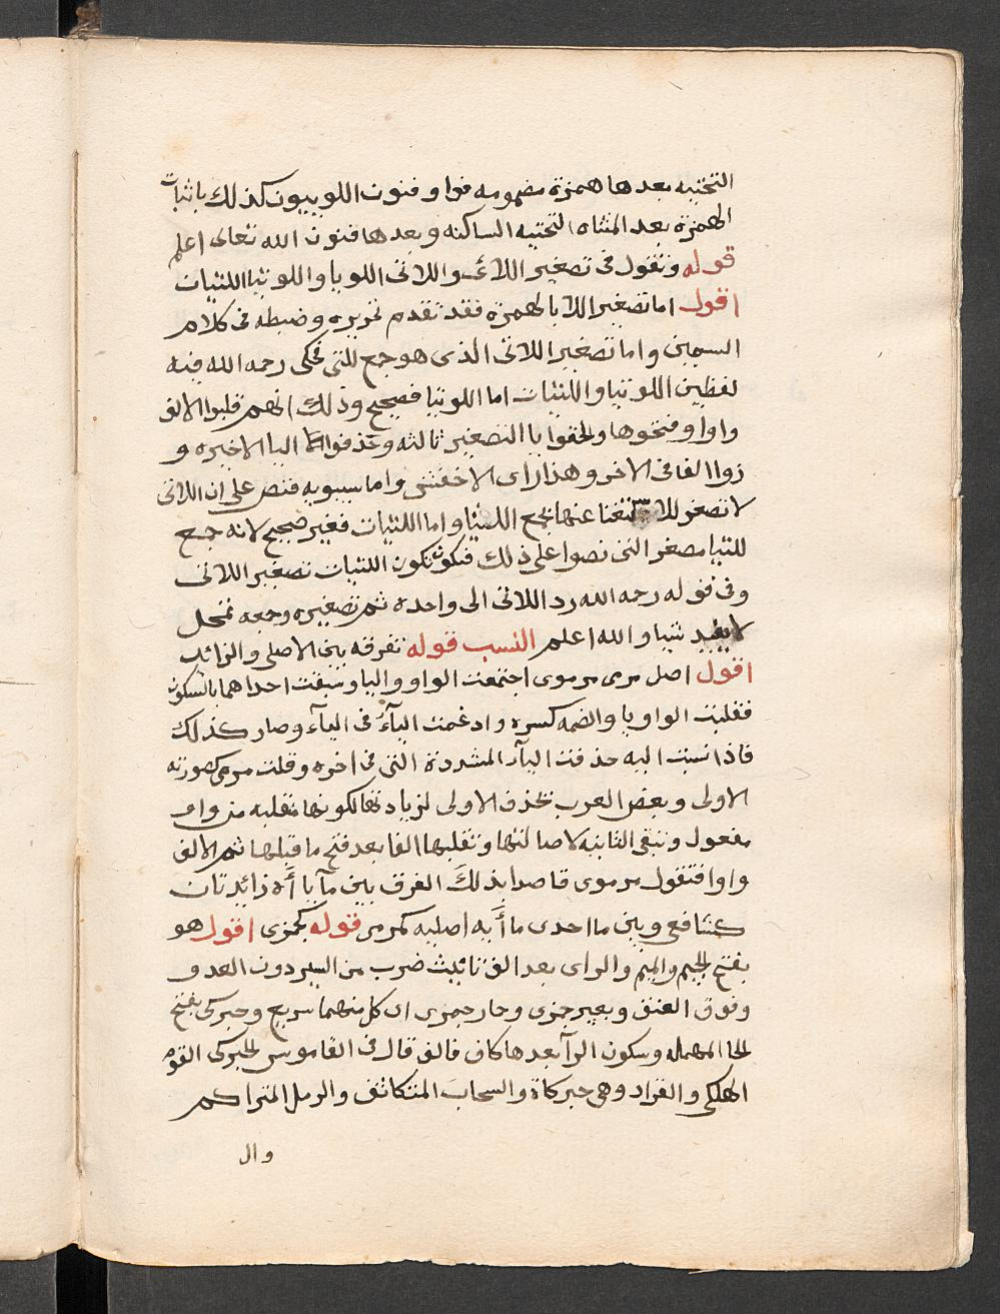 التحتيه بعدها همزة مضمومه فواو فنون اللوييون كذلك باثبات
الهمزة بعد المثناه التحتيه الساكنه وبعدها فنون الله تعالى اعلم
قوله وتقول في تصغير اللائى واللاتى اللويا واللوتيا اللتيات
اقول اما تصغير اللا بالهمزة فقد تقدم تحريره وضبطه في كلام
السمين واما تصغير اللاتى الذى هو جمع للتى فحكى رحمه الله فيه
لفظين اللوتيا واللتيات اما اللوتيا فصحيح وذلك انهم قلبوا الالف
واوا وفتحوها والحقوا يا التصغير ثالثه وحذفوا اليا الاخيره و
زوا الفا في الاخر وهذا راى الاخفش واما سيبويه فنص على ان اللاتى
لا تصغر للاستغنا عنها بجمع اللتيا واما اللتيات فغير صحيح لانه جمع
للتيا مصغر التى نصوا على ذلك فتكون اللتيات تصغير اللاتى
وفى قوله رحمه الله رد اللاتى الى واحده ثم تصغيره وجمعه تمحل
لا يفيد شيا والله اعلم النسب قوله تفرقه بين الاصلى والزائد
اقول اصل مرمى مرموى اجتمعت الواو واليا وسبقت احداهما بالسكون
فقلبت الواو يا والضمه كسره وادغمت اليآء فى اليآء وصار كذلك
فاذا نسبت اليه حذفت اليآء المشددة التى فى اخره وقلت مرمى كصورته
الاولى وبعض العرب بحذف الاولى لزيادتها لكونها منقلبه من واو
مفعول وتبقى الثانيه لاصالتها وتقلبها الفا بعد فتح ما قبلها ثم الالف
واوا فتقول مرموى قاصدا بذلك الفرق بين ما ياأه زايدتان
كشافعى وبين ما احدى ياأيه اصليه كمرمى قوله كجمزى اقول هو
بفتح الجيم والميم والراى بعد الف تانيث ضرب من السير دون العدو
وفوق العنق وبعير جمزى وحار جمزى اى كل منهما سريع وحبركى بفتح
الحا المهمله وسكون الرآ بعدها كاف فالف قال فى القاموس الحبركى القوم
الهلكى والقراد وهى حبركاة والسحاب المتكاثف والرمل المتراكم
وال